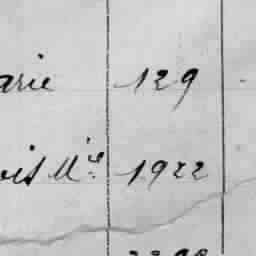 arie 129
ois Mie 1922